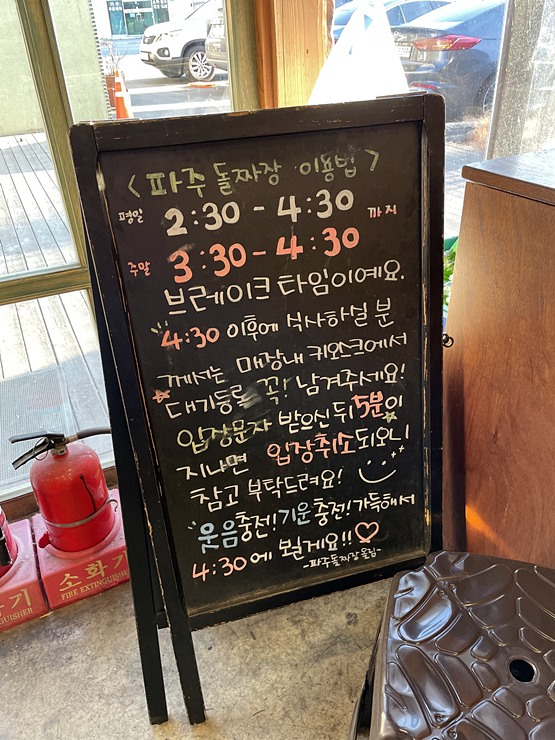 <파주 돌짜장 이용법>
평일 2:30 - 4:30 까지
주말 3:30 - 4:30
브레이크 타임이예요.
4:30 이후에 식사하실 분
께서는 매장내 키오스크에서
대기등록 꼭! 남겨주세요!
입장문자 받으신 뒤 5분이
지나면 입장취소 되오니
참고 부탁드려요!
웃음충전! 기운충전! 가득해서
4:30 에 뵐게요!!
-파주돌짜장 올림-
소화기
FIRE EXTINGUISHER
기
GUISHER